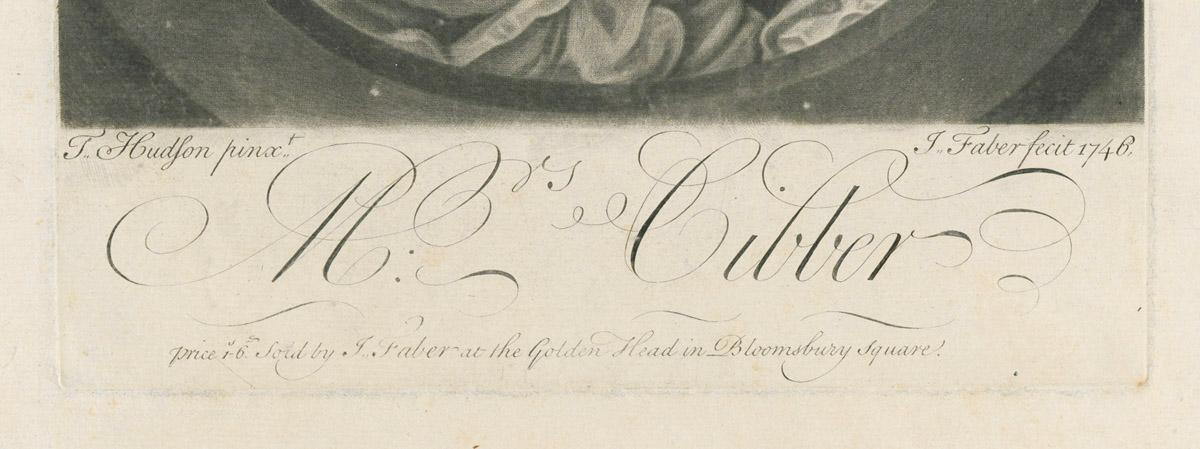 T. Hudſon pinx.ᵗ
J. Faber fecit 1746.
M:ʳˢ Cibber
price 1ˢ-6ᵈ Sold by J. Faber at the Golden Head in Bloomsbury Square.